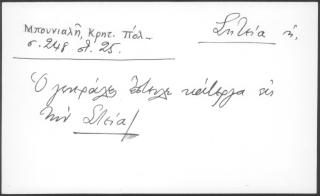 Μπουνιαλῆ, Κρητ. Πόλ–
σ. 248 στ. 25.
Σητεία ἡ,
Ὁ γενεράλες ἔστειλε κάτεργα εἰς
τὴν Στεία/